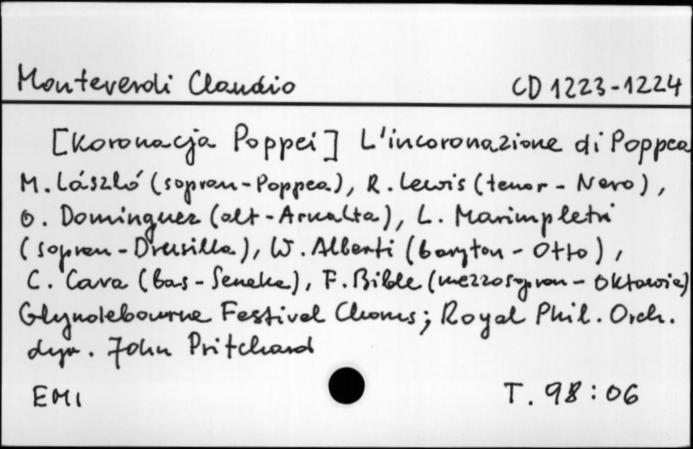 Monteverdi Claudio CD 1223-1224
[Koronacja Poppei] L'incoronazione di Poppea
M. László (sopran - Poppea), R. Lewis (tenor - Nero),
O. Dominguez (alt - Arnalta), L. Marimpietri
(sopran - Drusilla), W. Alberti (baryton - Otto),
C. Cava (bas - Seneka), F. Bible (mezzosopran - Oktawia)
Glyndebourne Festival Chorus; Royal Phil. Orch.
dyr. John Pritchard
EMI T. 98:06